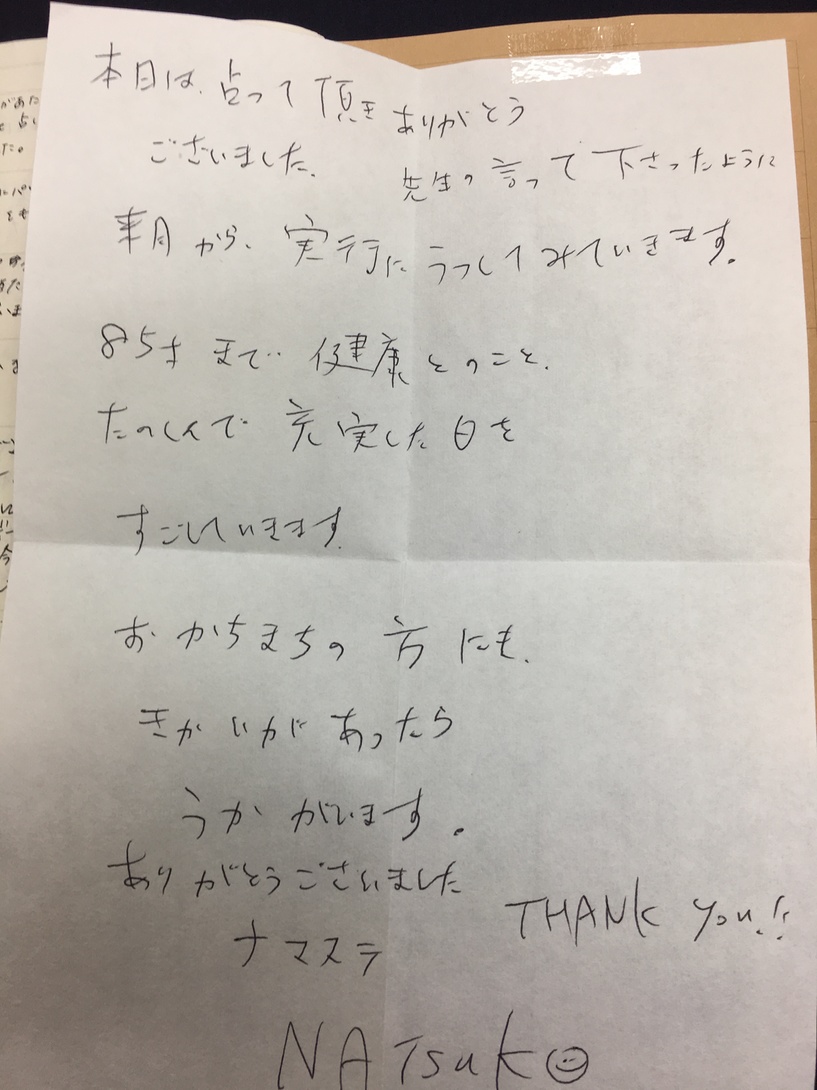 本日は、占って頂き ありがとう
ございました。
先生の言って下さったように
来月から、実行にうつしてみていきます。
85才まで健康とのこと、
たのしんで充実した日を
すごしていきます。
おかちまちの方にも、
きかいがあったら
うかがいます。
ありがとうございました
ナマステ
THANK You!!
NATSUKO